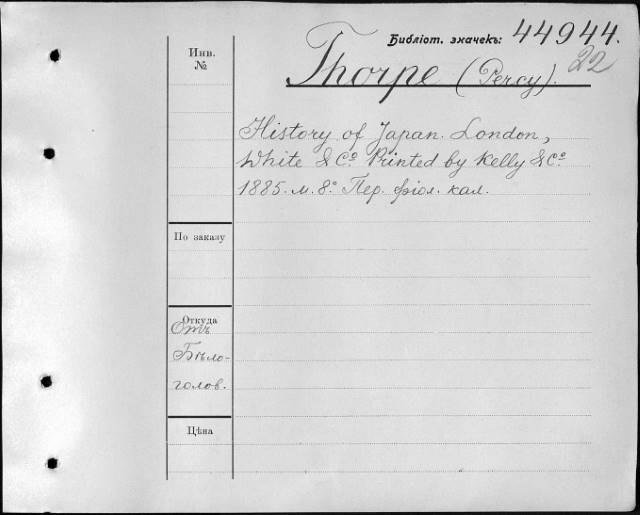 Библіот. значекъ: 44944.
22
Инв.
№
Thorpe (Percy).
History of Japan. London,
White & Cº. Printed by Kelly & Cº.
1885. м. 8º. Пер. фіол. кал.
По заказу
Откуда
Отъ
Бѣло-
голов.
Цѣна